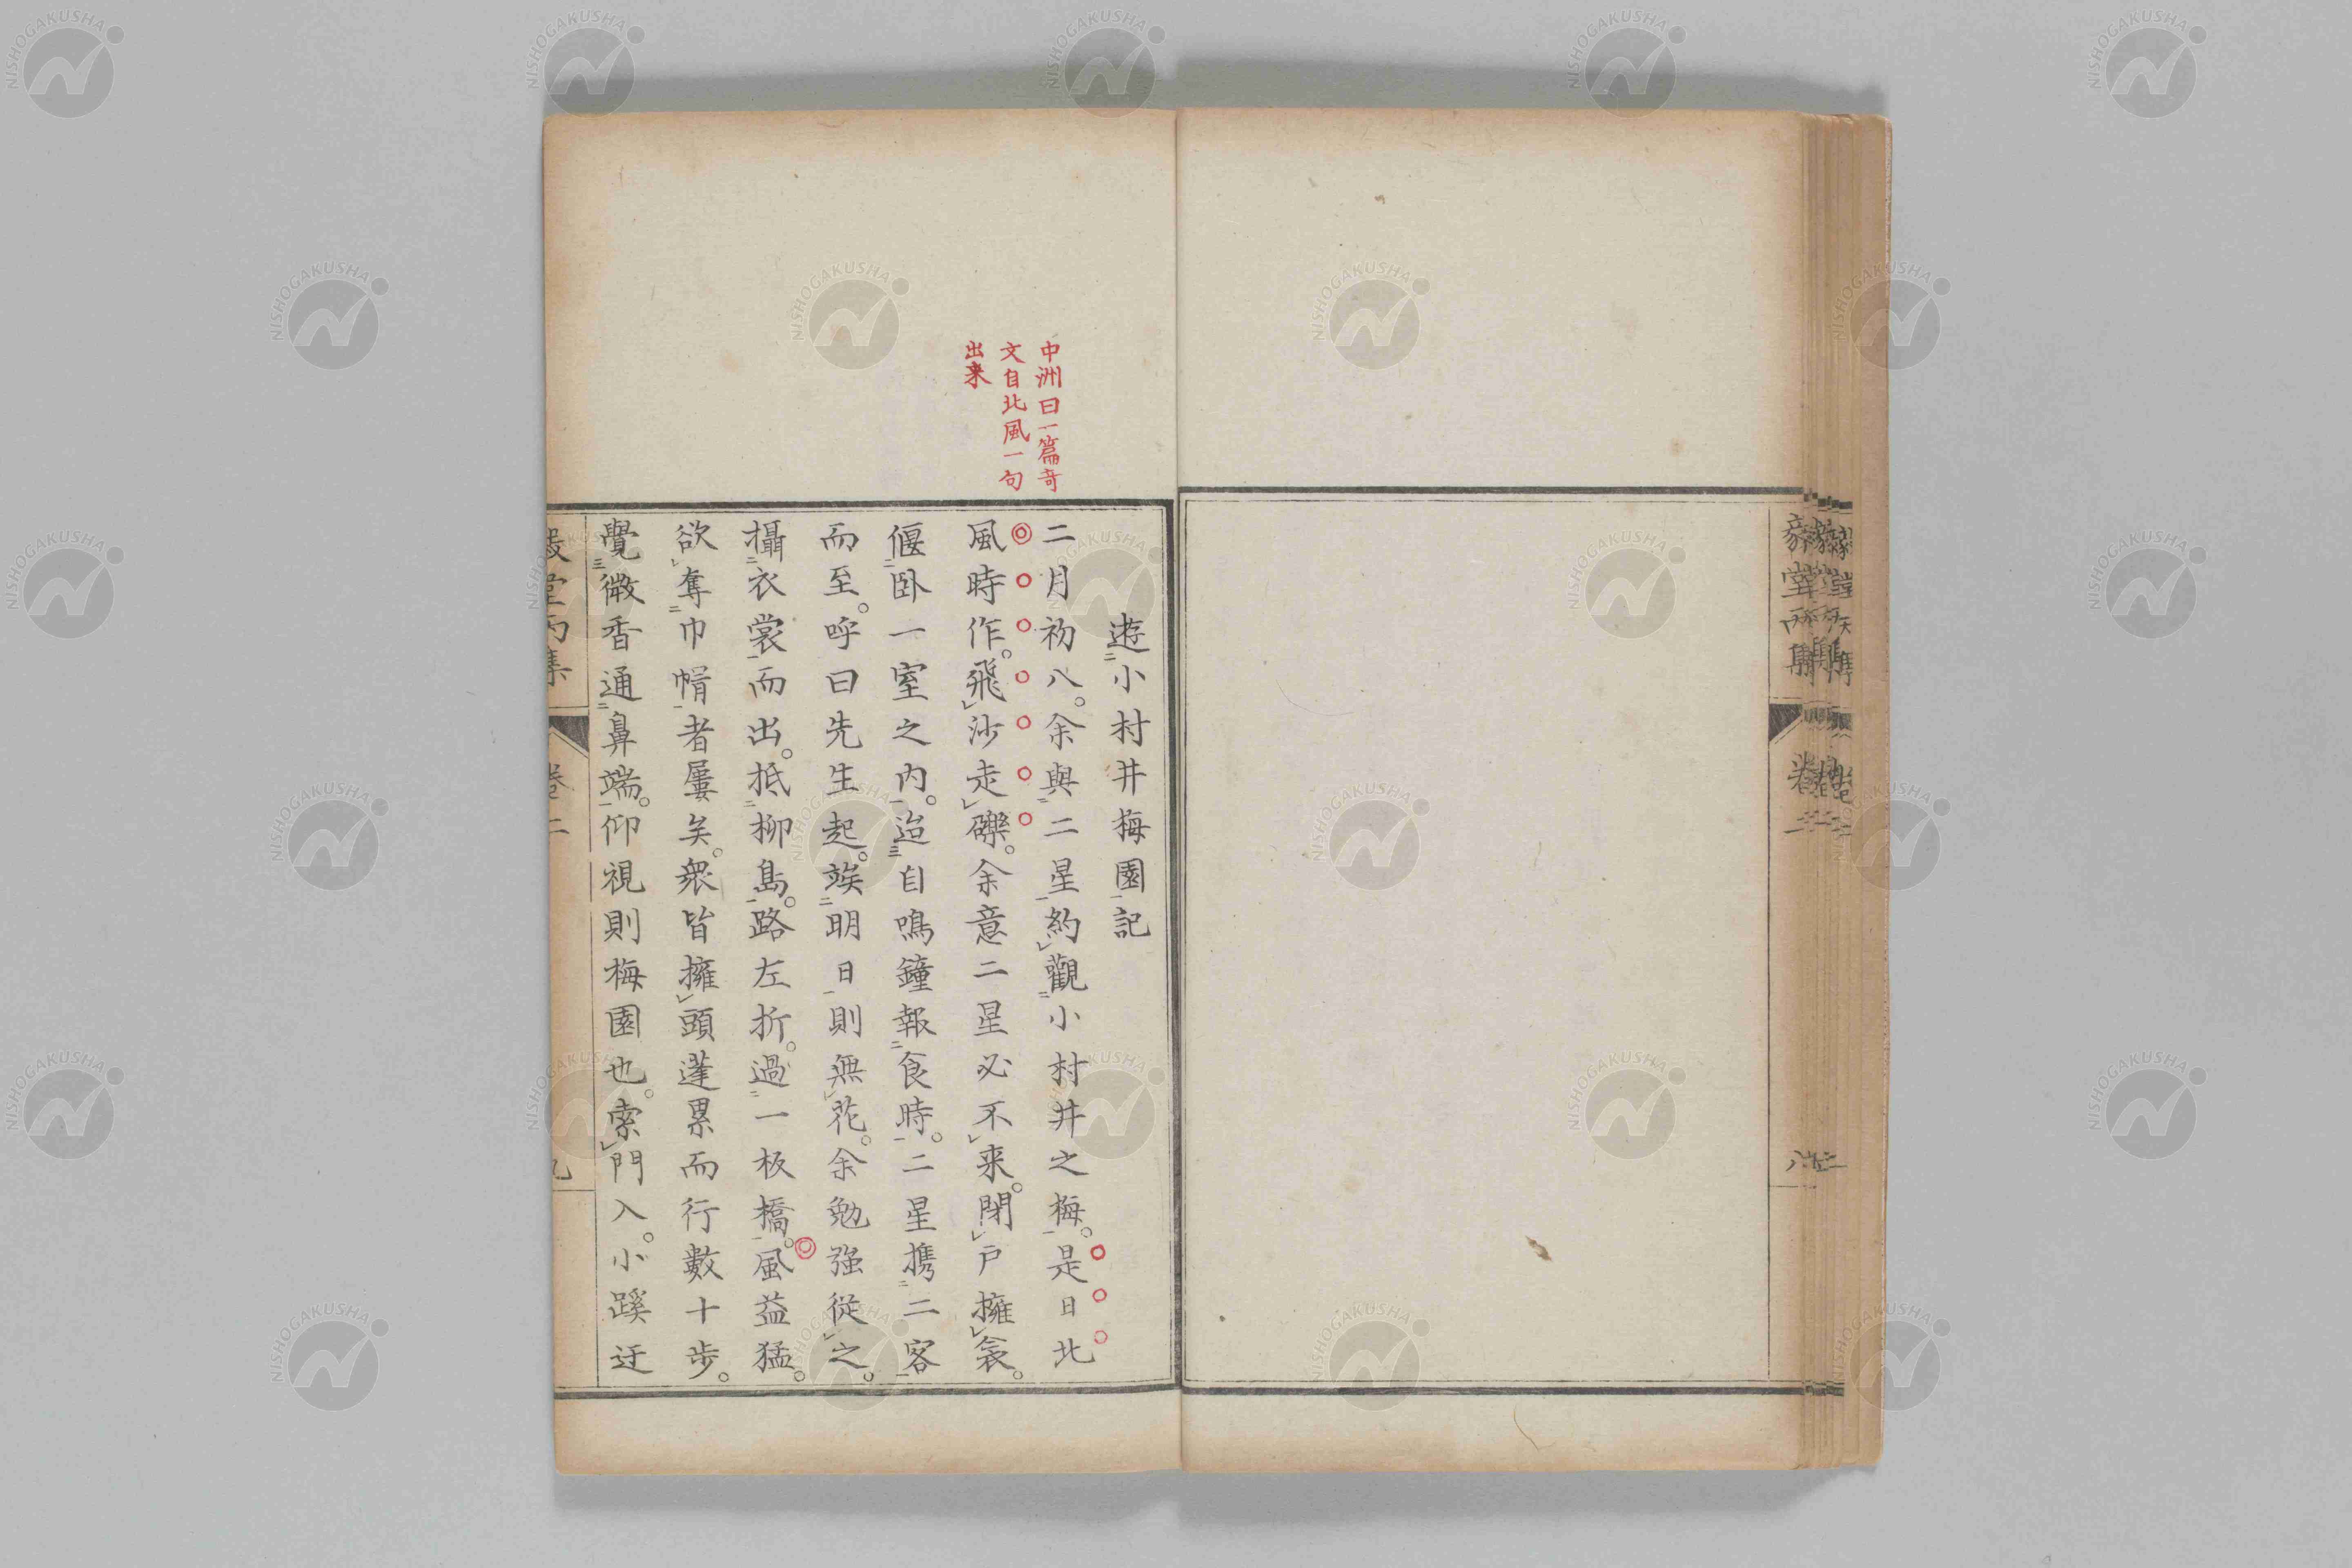 中洲曰一篇奇
文自北風一句
出来
遊小村井梅園記
二月初八。余與二星約觀小村井之梅。是日北
風時作。飛沙走礫。余意二星必不来。閉戸擁衾。
偃卧一室之内。迨自鳴鐘報食時。二星携二客
而至。呼曰先生起。竢明日則無花。余勉强從之。
攝衣裳而出。抵柳島。路左折。過一板橋。風益猛。
欲奪巾幘者屢矣。衆皆擁頭蓬累而行數十步。
覺微香通鼻端。仰視則梅園也。索門入。小蹊迂
毅堂丙集
卷二
九